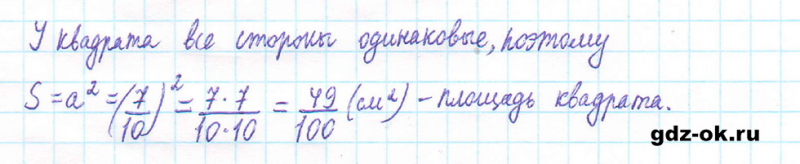 У квадрата все стороны одинаковые, поэтому
S = a² = (7/10)² = 7·7/10·10 = 49/100 (см²) – площадь квадрата.
gdz-ok.ru